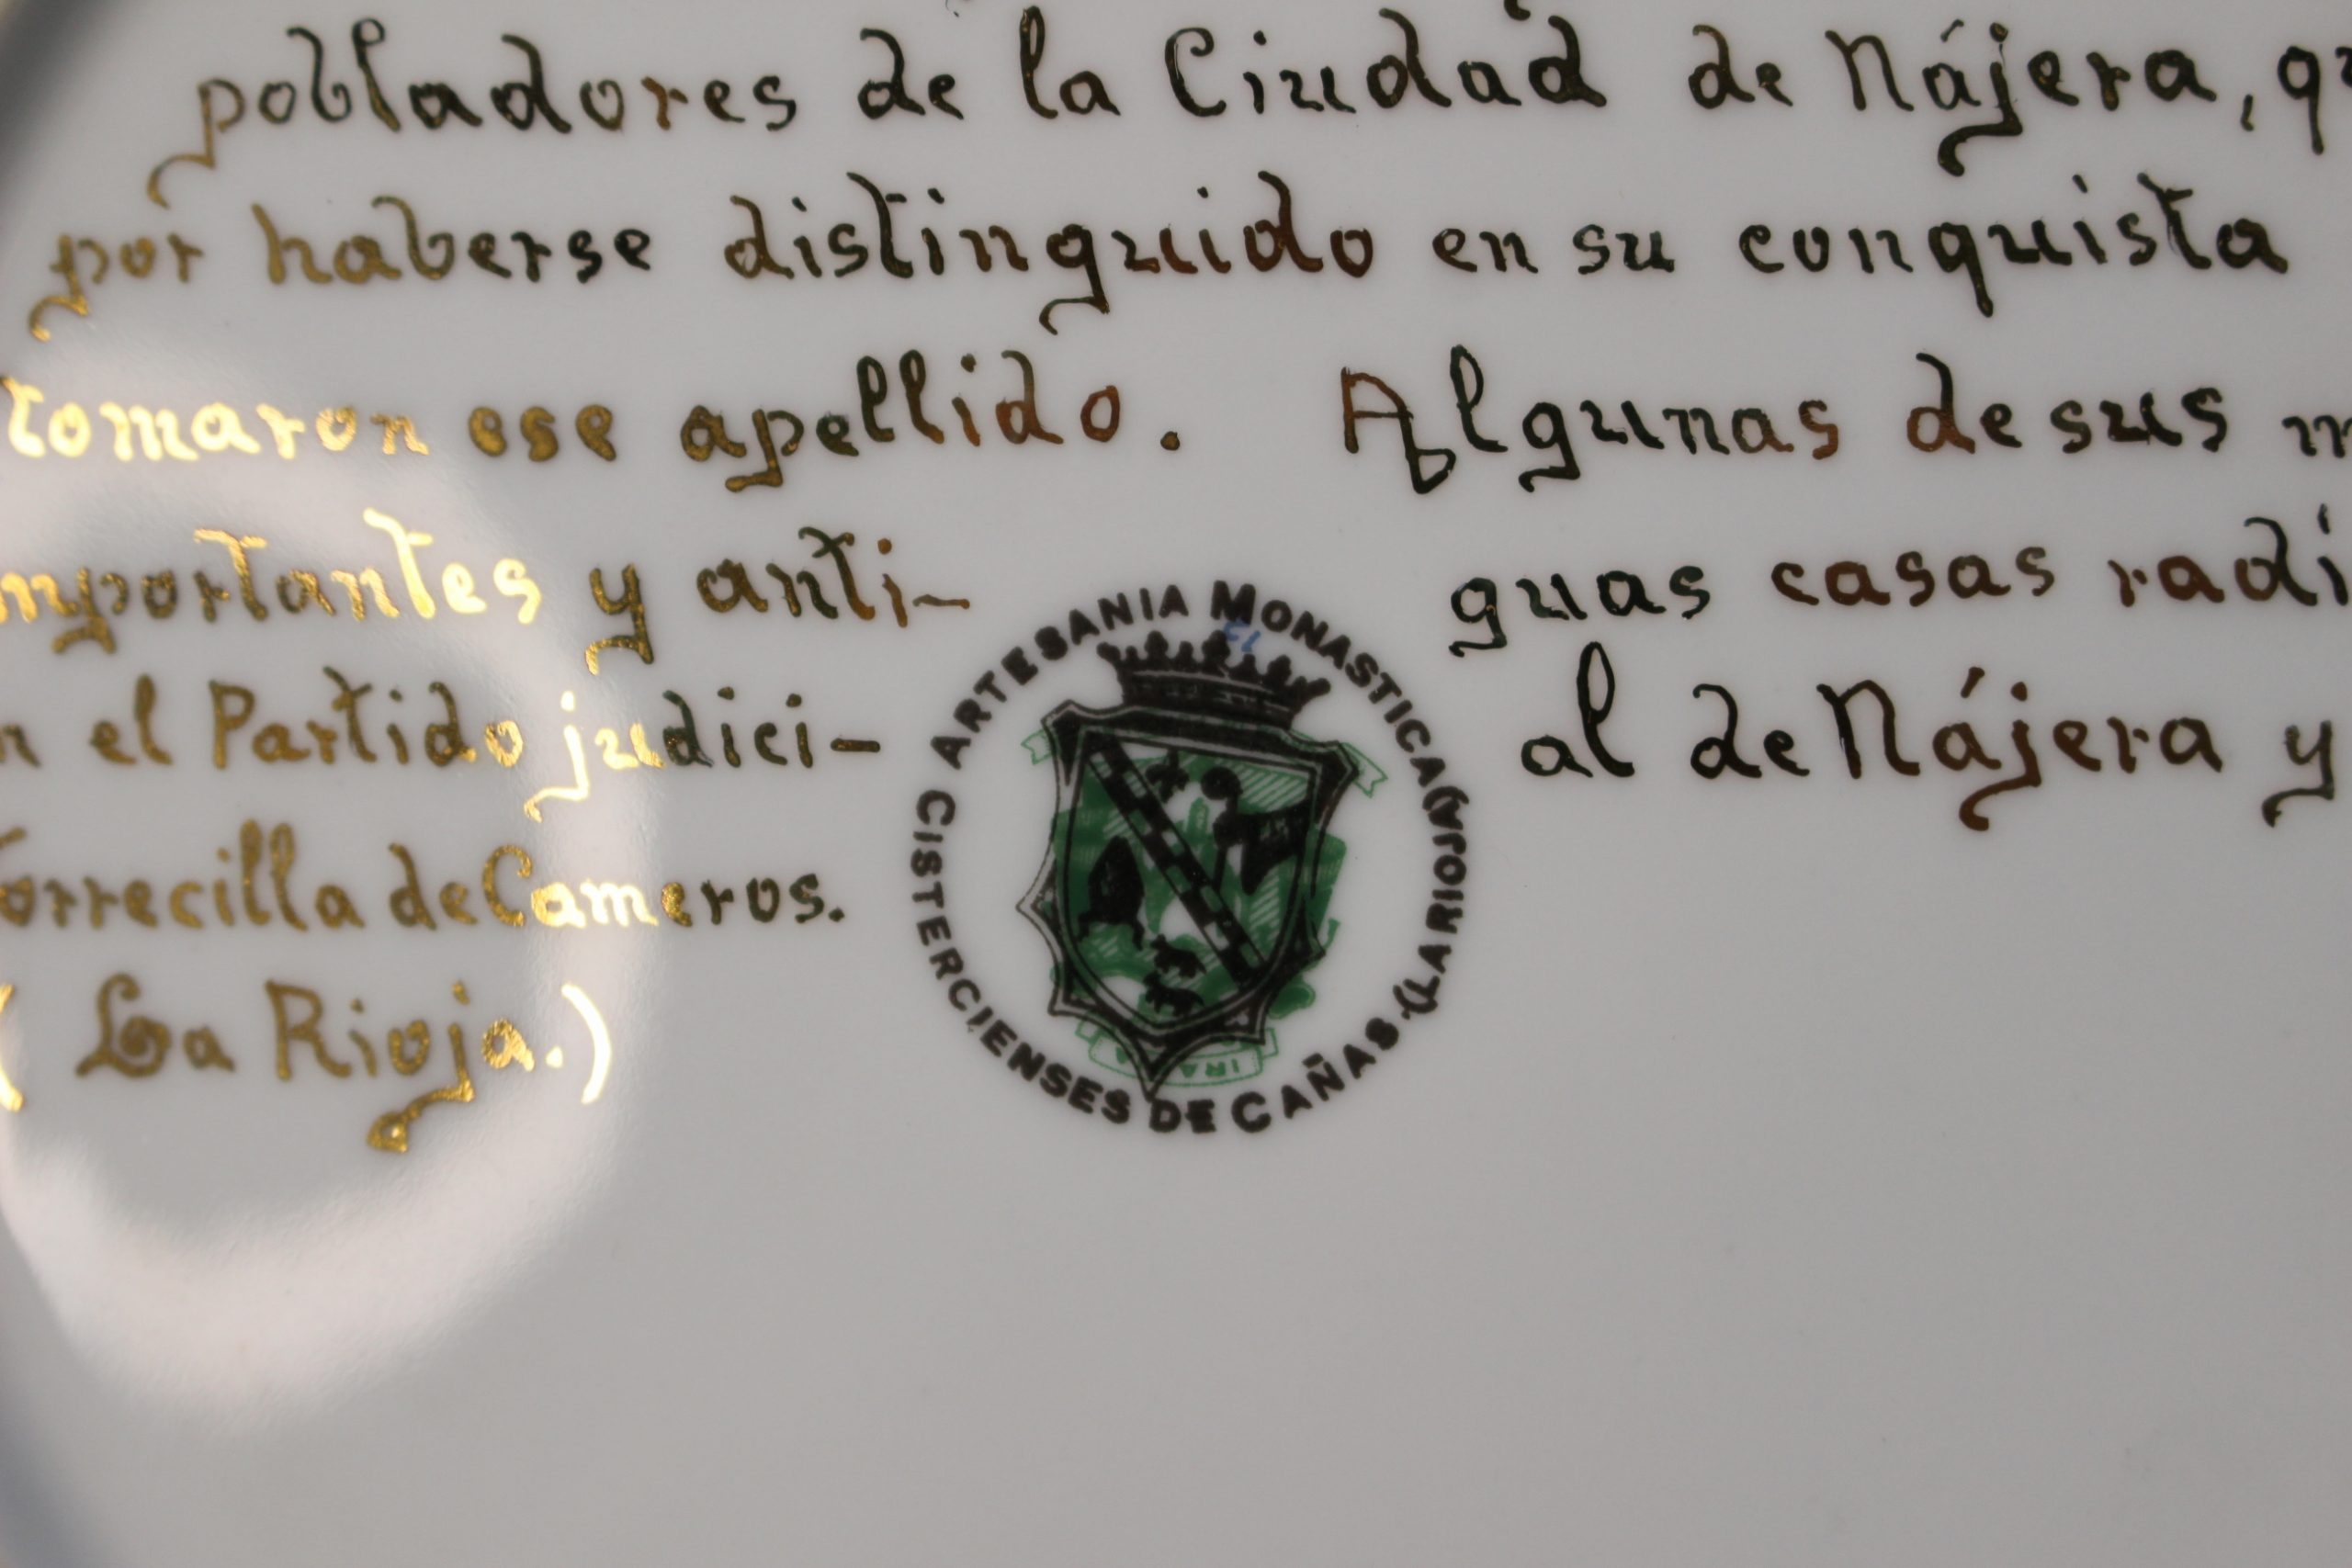 pobladores de la Ciudad de Nájera,
por haberse distinguido en su conquista
tomaron ese apellido. Algunas de sus
mportantes y anti- guas casas radi
n el Partido judici- al de Nájera y
orrecilla de Cameros.
( La Rioja.)
ARTESANIA MONASTICA
CISTERCIENSES DE CAÑAS.(LA RIOJA)
IRA